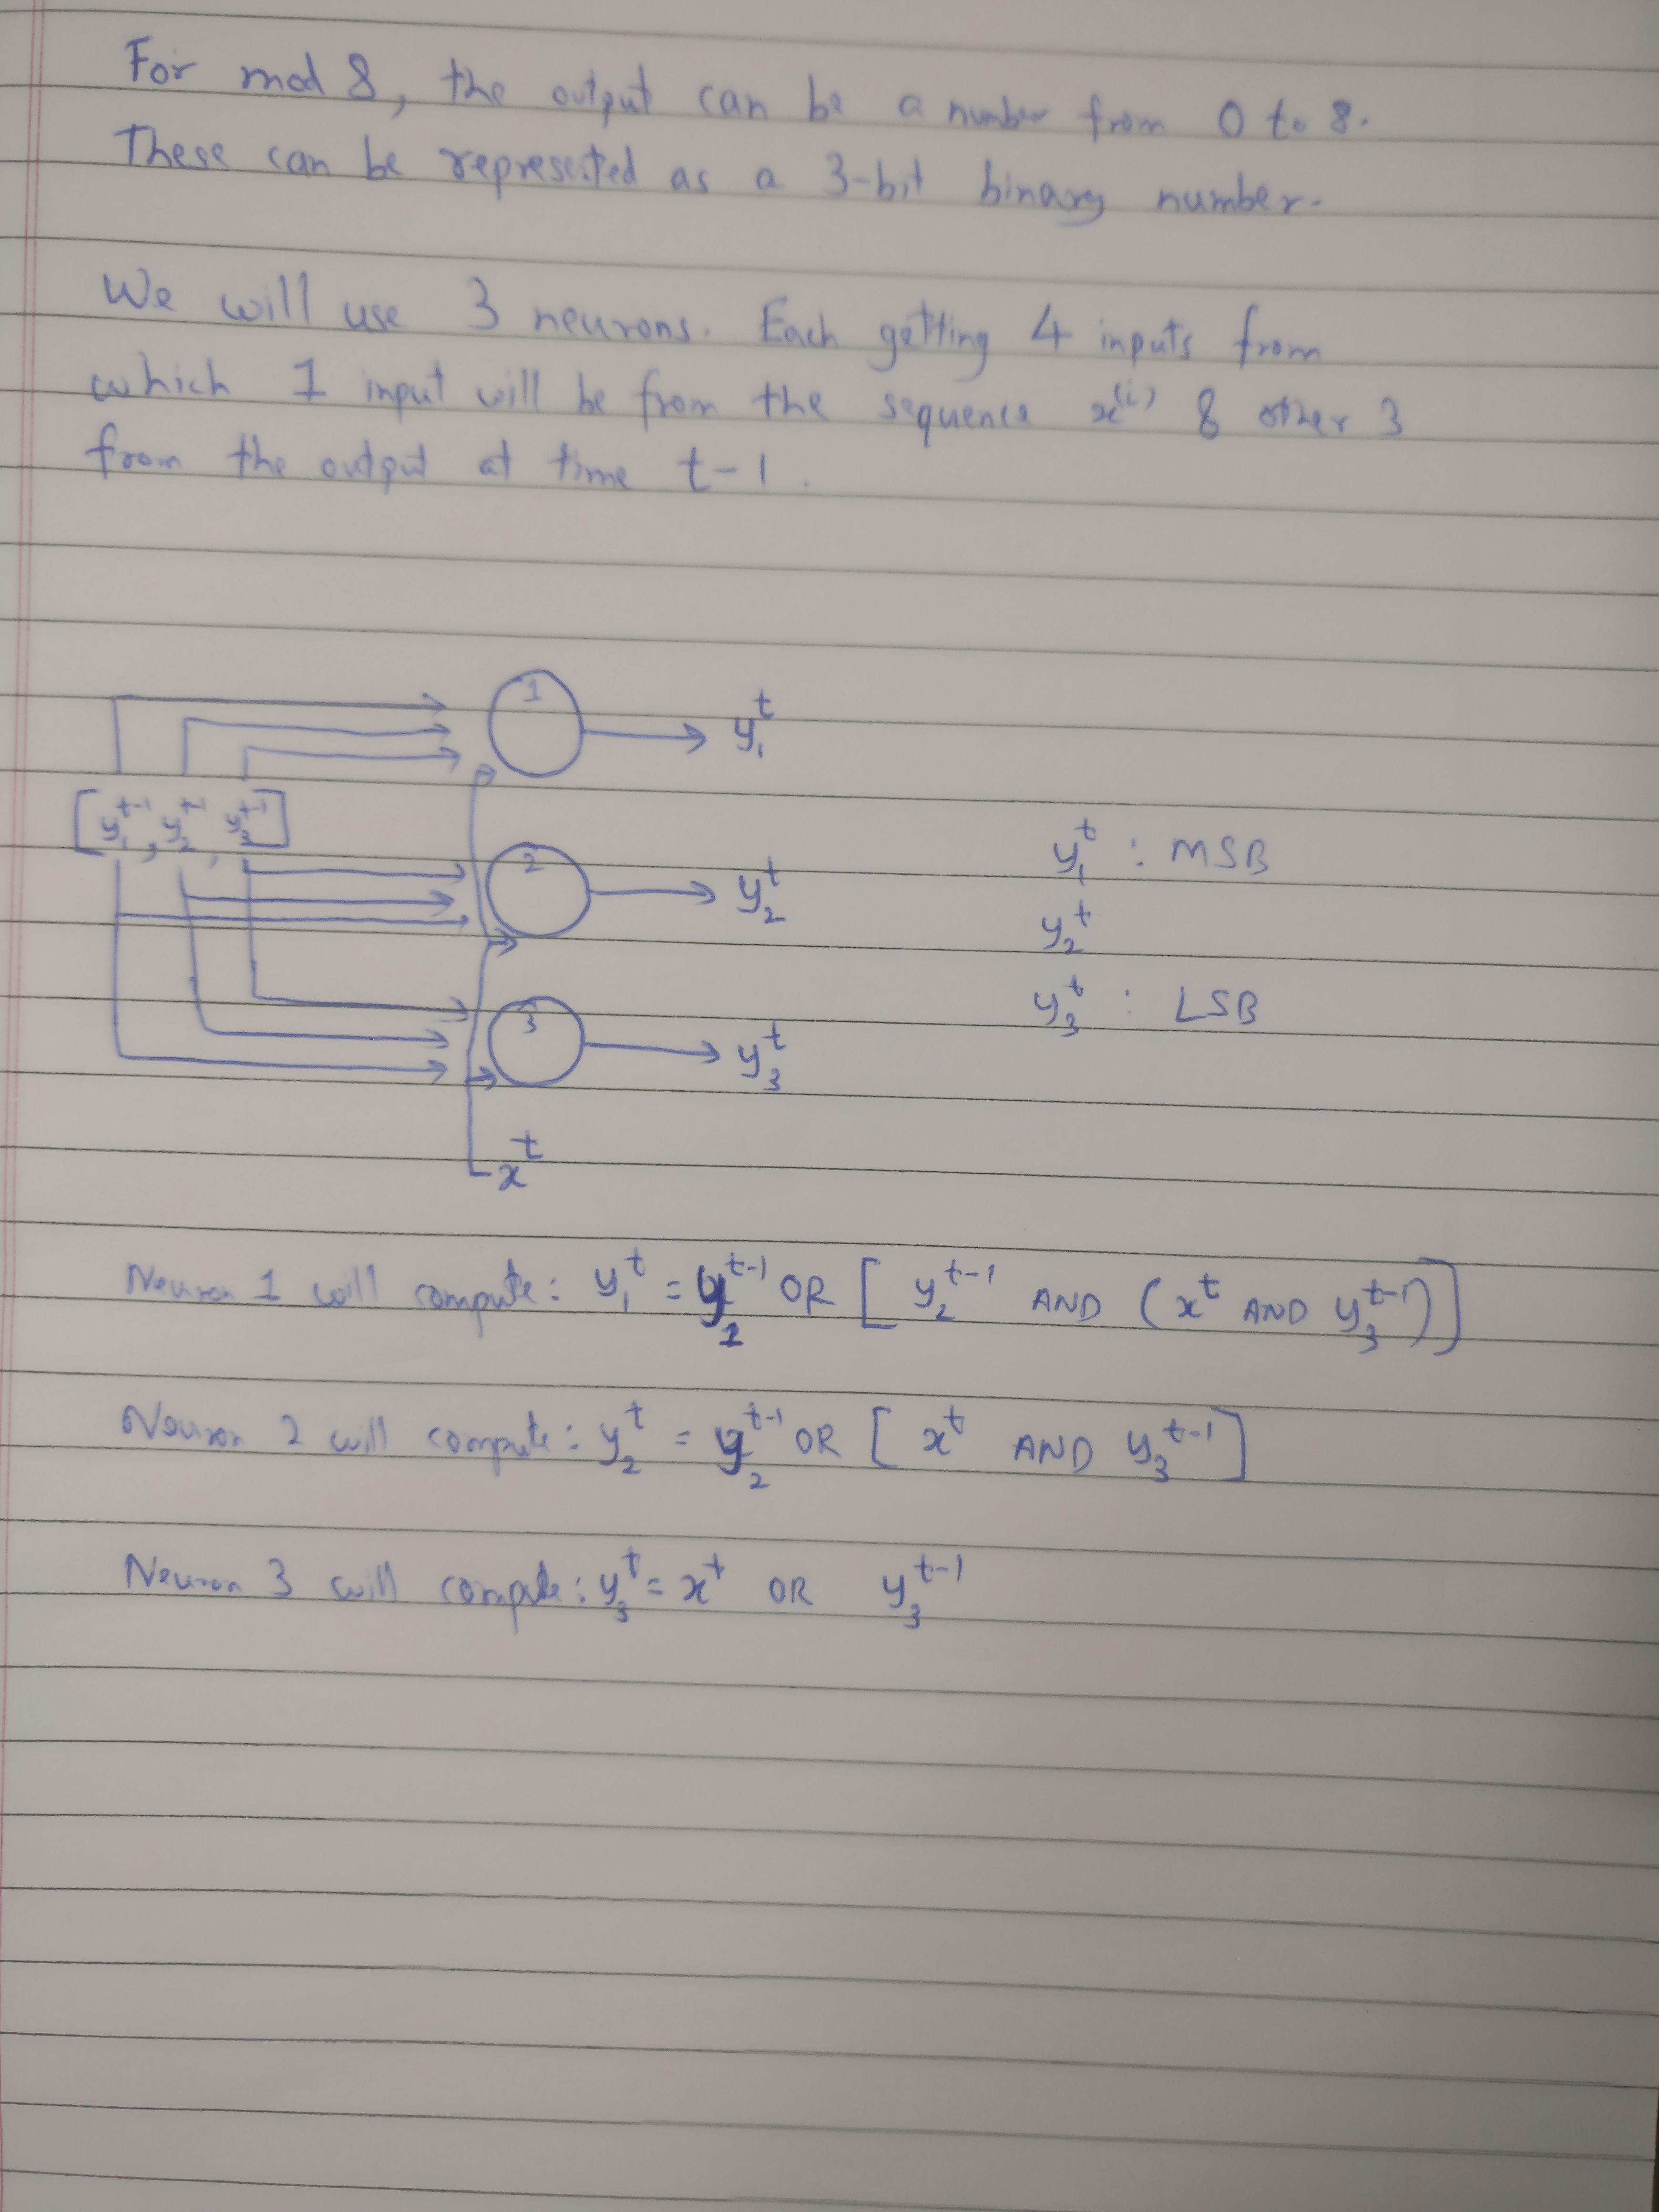 For mod 8, the output can be a number from 0 to 8.
These can be represented as a 3-bit binary number.
We will use 3 neurons. Each getting 4 inputs from
which 1 input will be from the sequence x^(i) & other 3
from the output at time t-1.
1
y₁^t
[y₁^t-1, y₂^t-1, y₃^t-1]
2
y₂^t
y₁^t : MSB
y₂^t
y₃^t : LSB
3
y₃^t
x^t
Neuron 1 will compute: y₁^t = y₁^t-1 OR [y₂^t-1 AND (x^t AND y₃^t-1)]
Neuron 2 will compute: y₂^t = y₂^t-1 OR [x^t AND y₃^t-1]
Neuron 3 will compute: y₃^t = x^t OR y₃^t-1